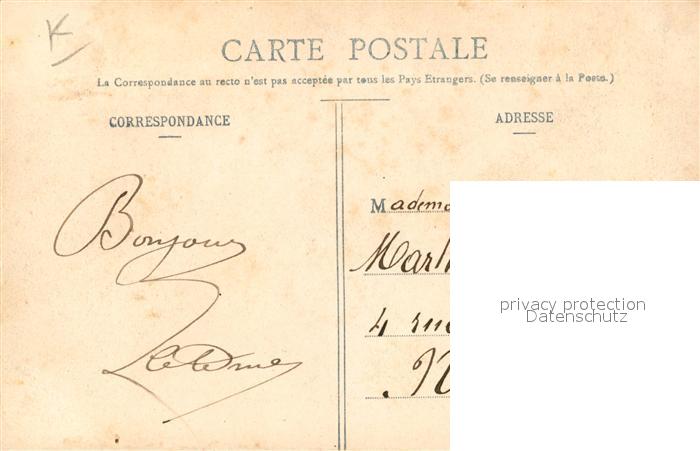 K
CARTE POSTALE
La Correspondance au recto n'est pas acceptée par tous les Pays Etrangers. (Se renseigner à la Poste.)
CORRESPONDANCE
ADRESSE
Bonjour
Mademo
4 rue
privacy protection
Datenschutz